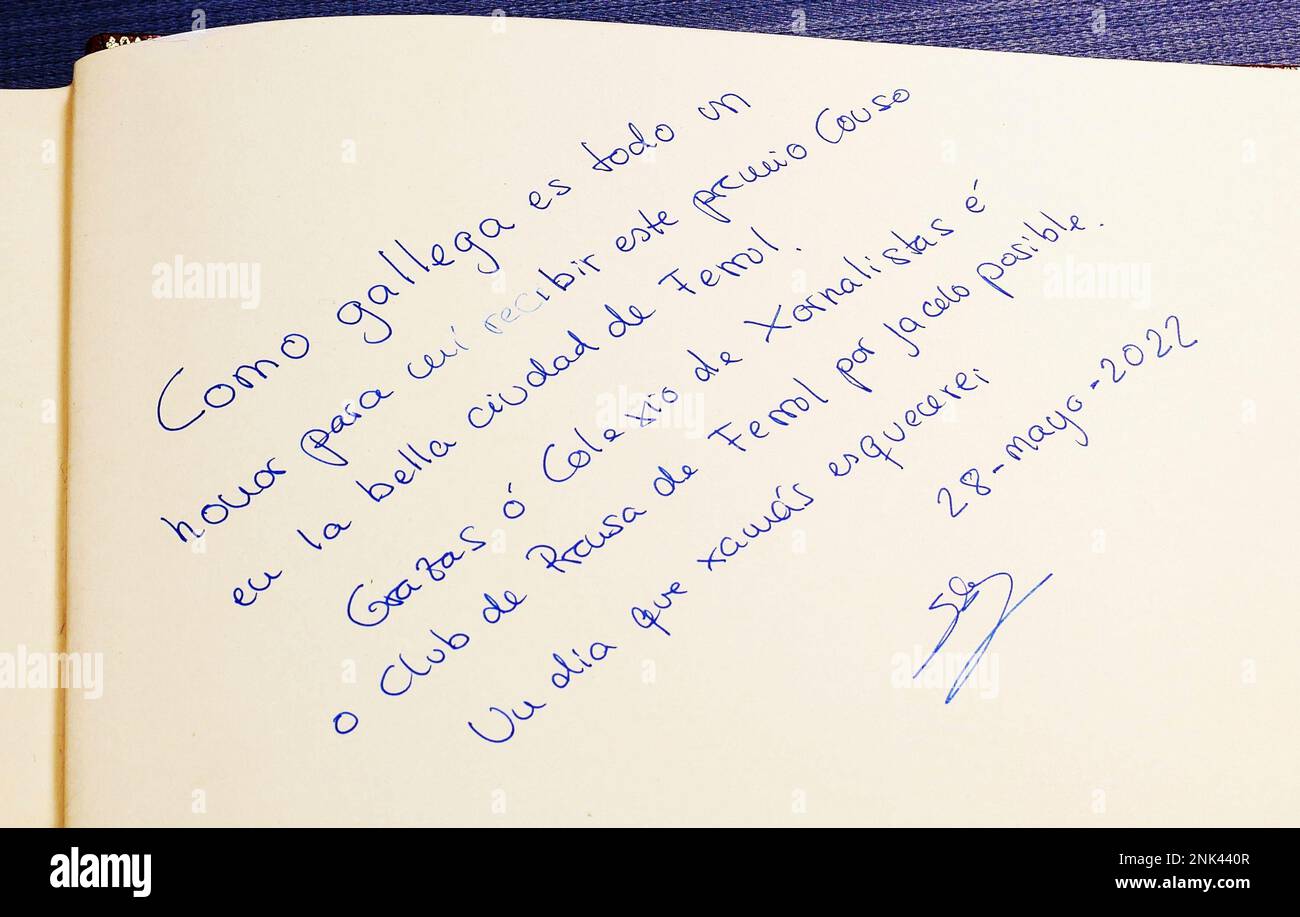 Como gallega es todo un
honor para mí recibir este premio Couso
en la bella ciudad de Ferrol.
Grazas ó Colexio de Xornalistas é
o Club de Prensa de Ferrol por facelo posible.
Un día que xamás esquecerei
28-mayo-2022
alamy
Image ID: 2NK440R
www.alamy.com